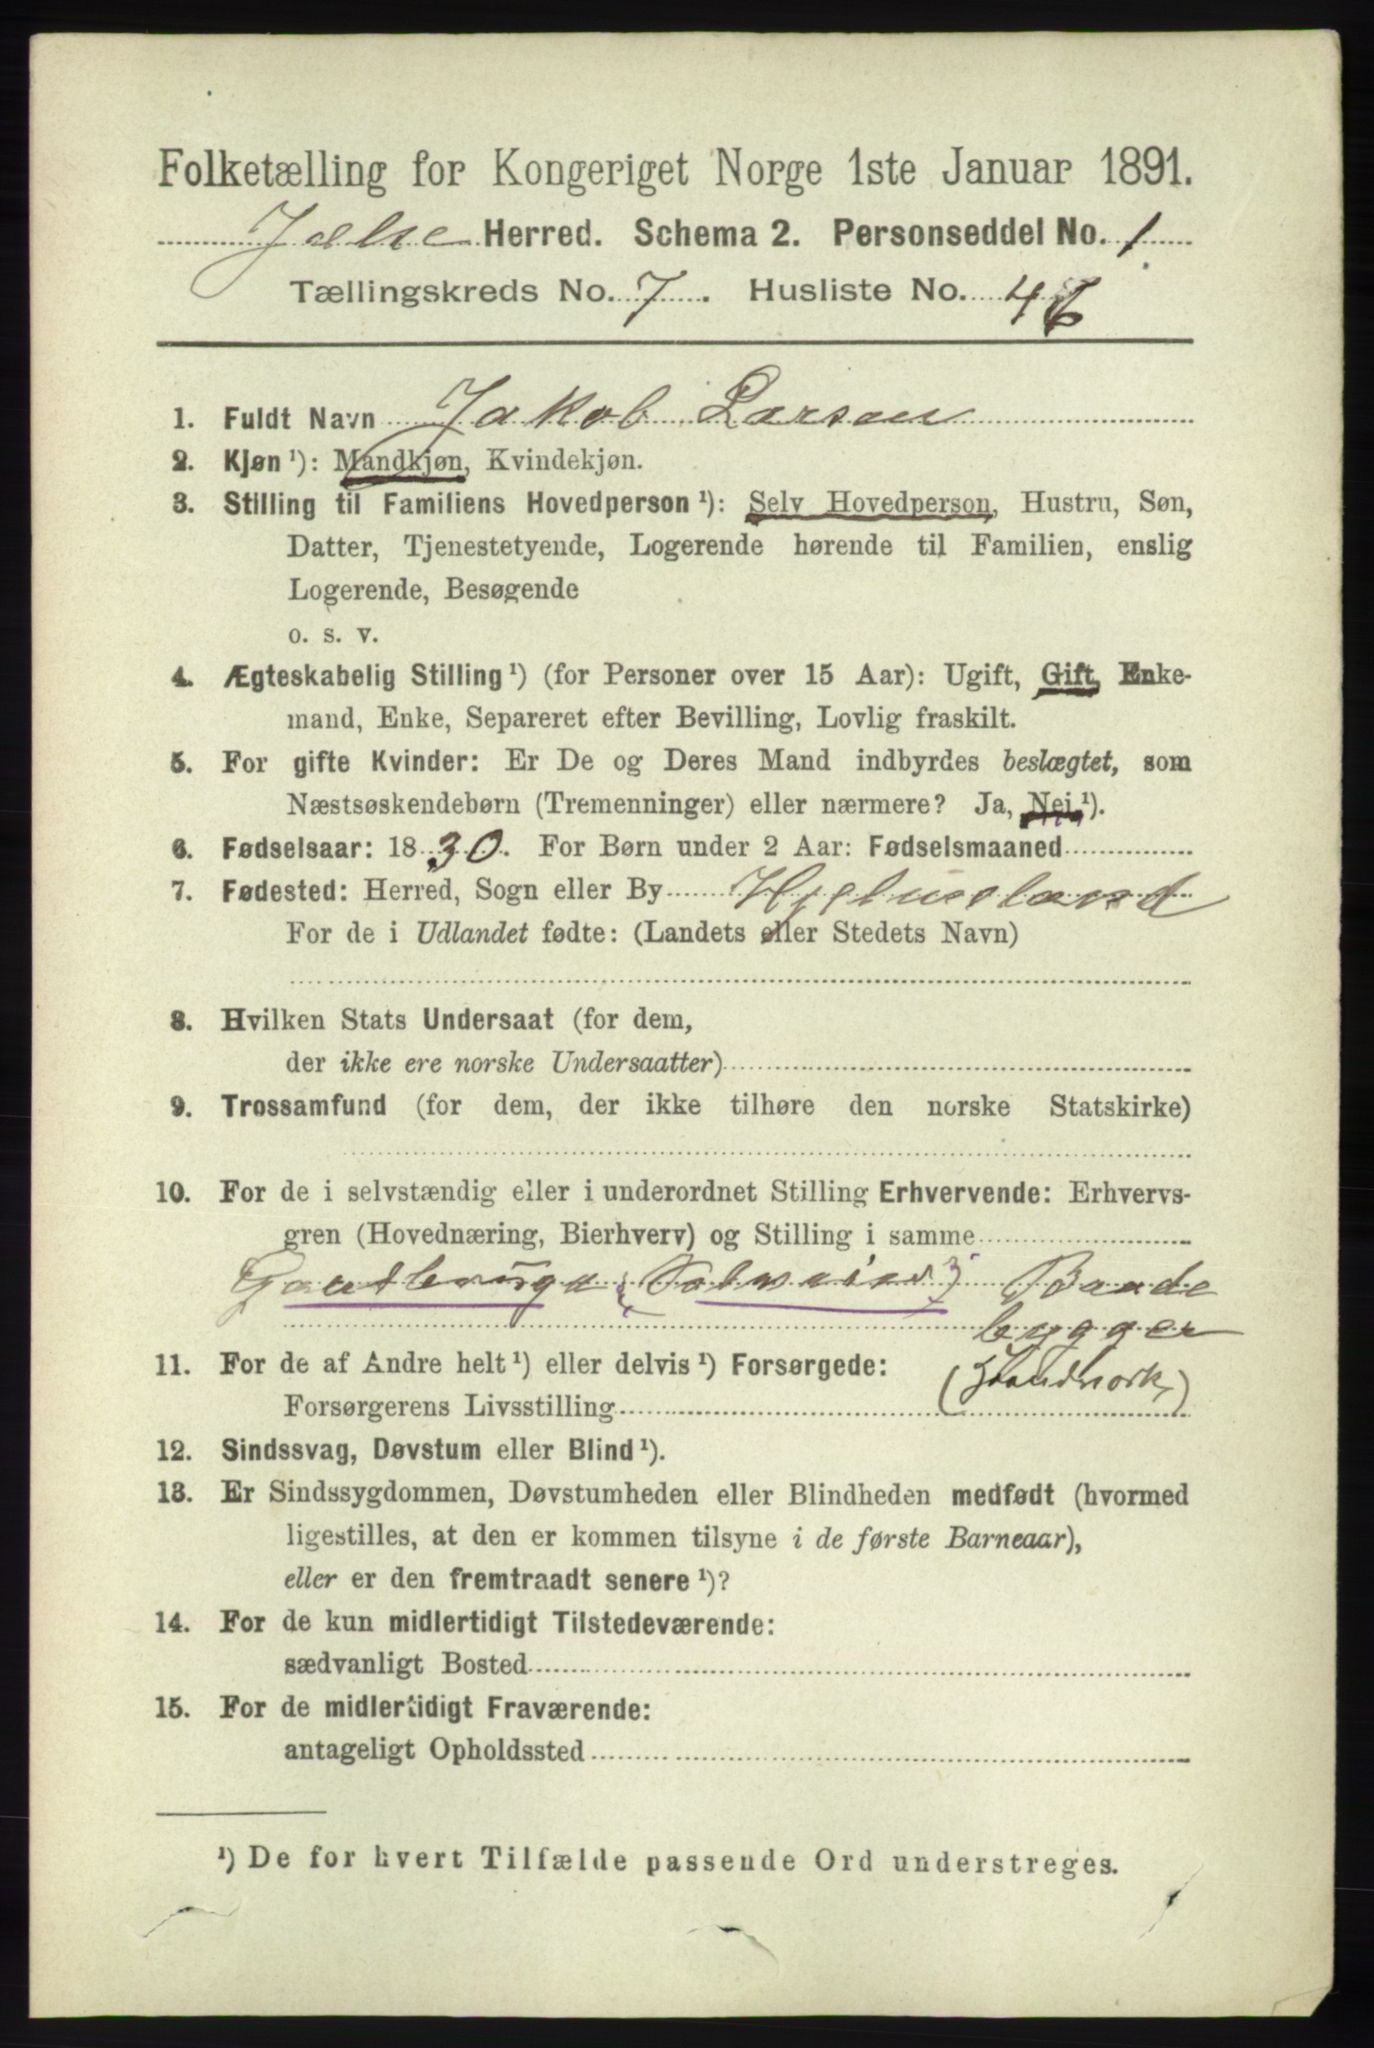 Folketælling for Kongeriget Norge 1ste Januar 1891.
Jælse Herred. Schema 2. Personseddel No. 1
Tællingskreds No. 7. Husliste No. 46
1. Fuldt Navn Jakob Larsen
2. Kjøn ¹): Mandkjøn, Kvindekjøn.
3. Stilling til Familiens Hovedperson ¹): Selv Hovedperson, Hustru, Søn,
Datter, Tjenestetyende, Logerende hørende til Familien, enslig
Logerende, Besøgende
o. s. v.
4. Ægteskabelig Stilling ¹) (for Personer over 15 Aar): Ugift, Gift, Enke-
mand, Enke, Separeret efter Bevilling, Lovlig fraskilt.
5. For gifte Kvinder: Er De og Deres Mand indbyrdes beslægtet, som
Næstsøskendebørn (Tremenninger) eller nærmere? Ja, Nei ¹).
6. Fødselsaar: 1830. For Børn under 2 Aar: Fødselsmaaned
7. Fødested: Herred, Sogn eller By Hjelmeland
For de i Udlandet fødte: (Landets eller Stedets Navn)
8. Hvilken Stats Undersaat (for dem,
der ikke ere norske Undersaatter)
9. Trossamfund (for dem, der ikke tilhøre den norske Statskirke)
10. For de i selvstændig eller i underordnet Stilling Erhvervende: Erhvervs-
gren (Hovednæring, Bierhverv) og Stilling i samme
Gaardbruger (Selveier) Baade
bygger
11. For de af Andre helt ¹) eller delvis ¹) Forsørgede: (Haandverk)
Forsørgerens Livsstilling
12. Sindssvag, Døvstum eller Blind ¹).
13. Er Sindssygdommen, Døvstumheden eller Blindheden medfødt (hvormed
ligestilles, at den er kommen tilsyne i de første Barneaar),
eller er den fremtraadt senere ¹)?
14. For de kun midlertidigt Tilstedeværende:
sædvanligt Bosted
15. For de midlertidigt Fraværende:
antageligt Opholdssted
¹) De for hvert Tilfælde passende Ord understreges.